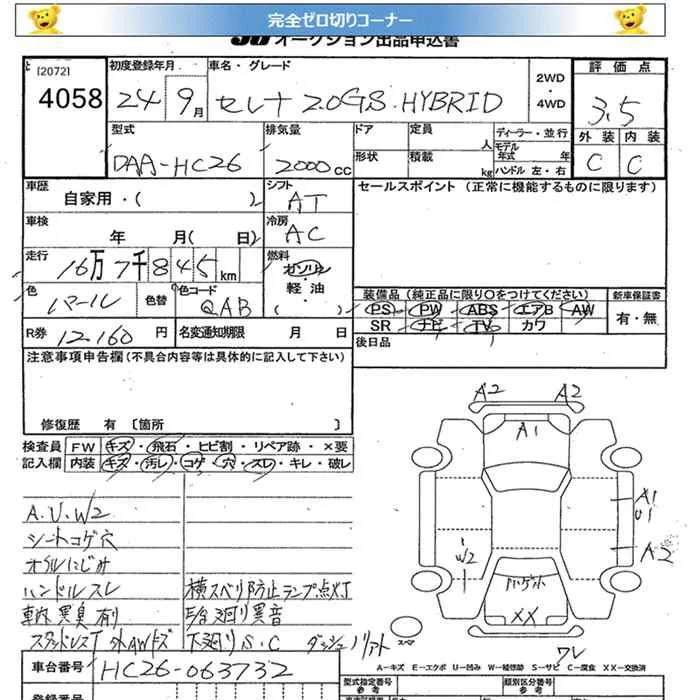 完全ゼロ切りコーナー
JU オークション出品申込書
[2072]
4058
初度登録年月
24 9月
車名・グレード
セレナ 2.0GS.HYBRID
2WD
・
4WD
評価点
3.5
外装 内装
C C
型式
DAA-HC26
排気量
2000cc
ドア
形状
定員 人
積載 kg
ディーラー・並行
モデル年式 年
ハンドル 左・右
車歴
自家用・( )
シフト
AT
セールスポイント (正常に機能するものに限ります)
車検
年 月( 日)
冷房
AC
走行
16万7千845km
燃料
ガソリン
・
軽油
( )
色
パール
色替
色コード
QAB
装備品(純正品に限り○をつけてください)
PS・PW・ABS・エアB・AW
SR・ナビ・TV・カワ
新車保証書
有・無
R券 12,160円
名変通知期限 月 日
後日品
注意事項申告欄(不具合内容等は具体的に記入して下さい)
修復歴 有 〔箇所 〕
検査員記入欄
FW キズ・飛石・ヒビ割・リペア跡・×要
内装 キズ・汚レ・コゲ・穴・スレ・キレ・破レ
A.U.W2
シートコゲ穴
オイルにじみ
ハンドルスレ 横スベリ防止ランプ点灯
車内異臭有り 足廻り異音
スタッドレスT 外AWキズ 下廻りS.C
A2 A2
A1
A1
U1
A2
W2
XX
ワレ
A－キズ E－エクボ U－凹み W－補修跡 S－サビ C－腐食 XX－交換済
車台番号 HC26-063732
型式指定番号
参考
類別区分番号
参考
登録番号